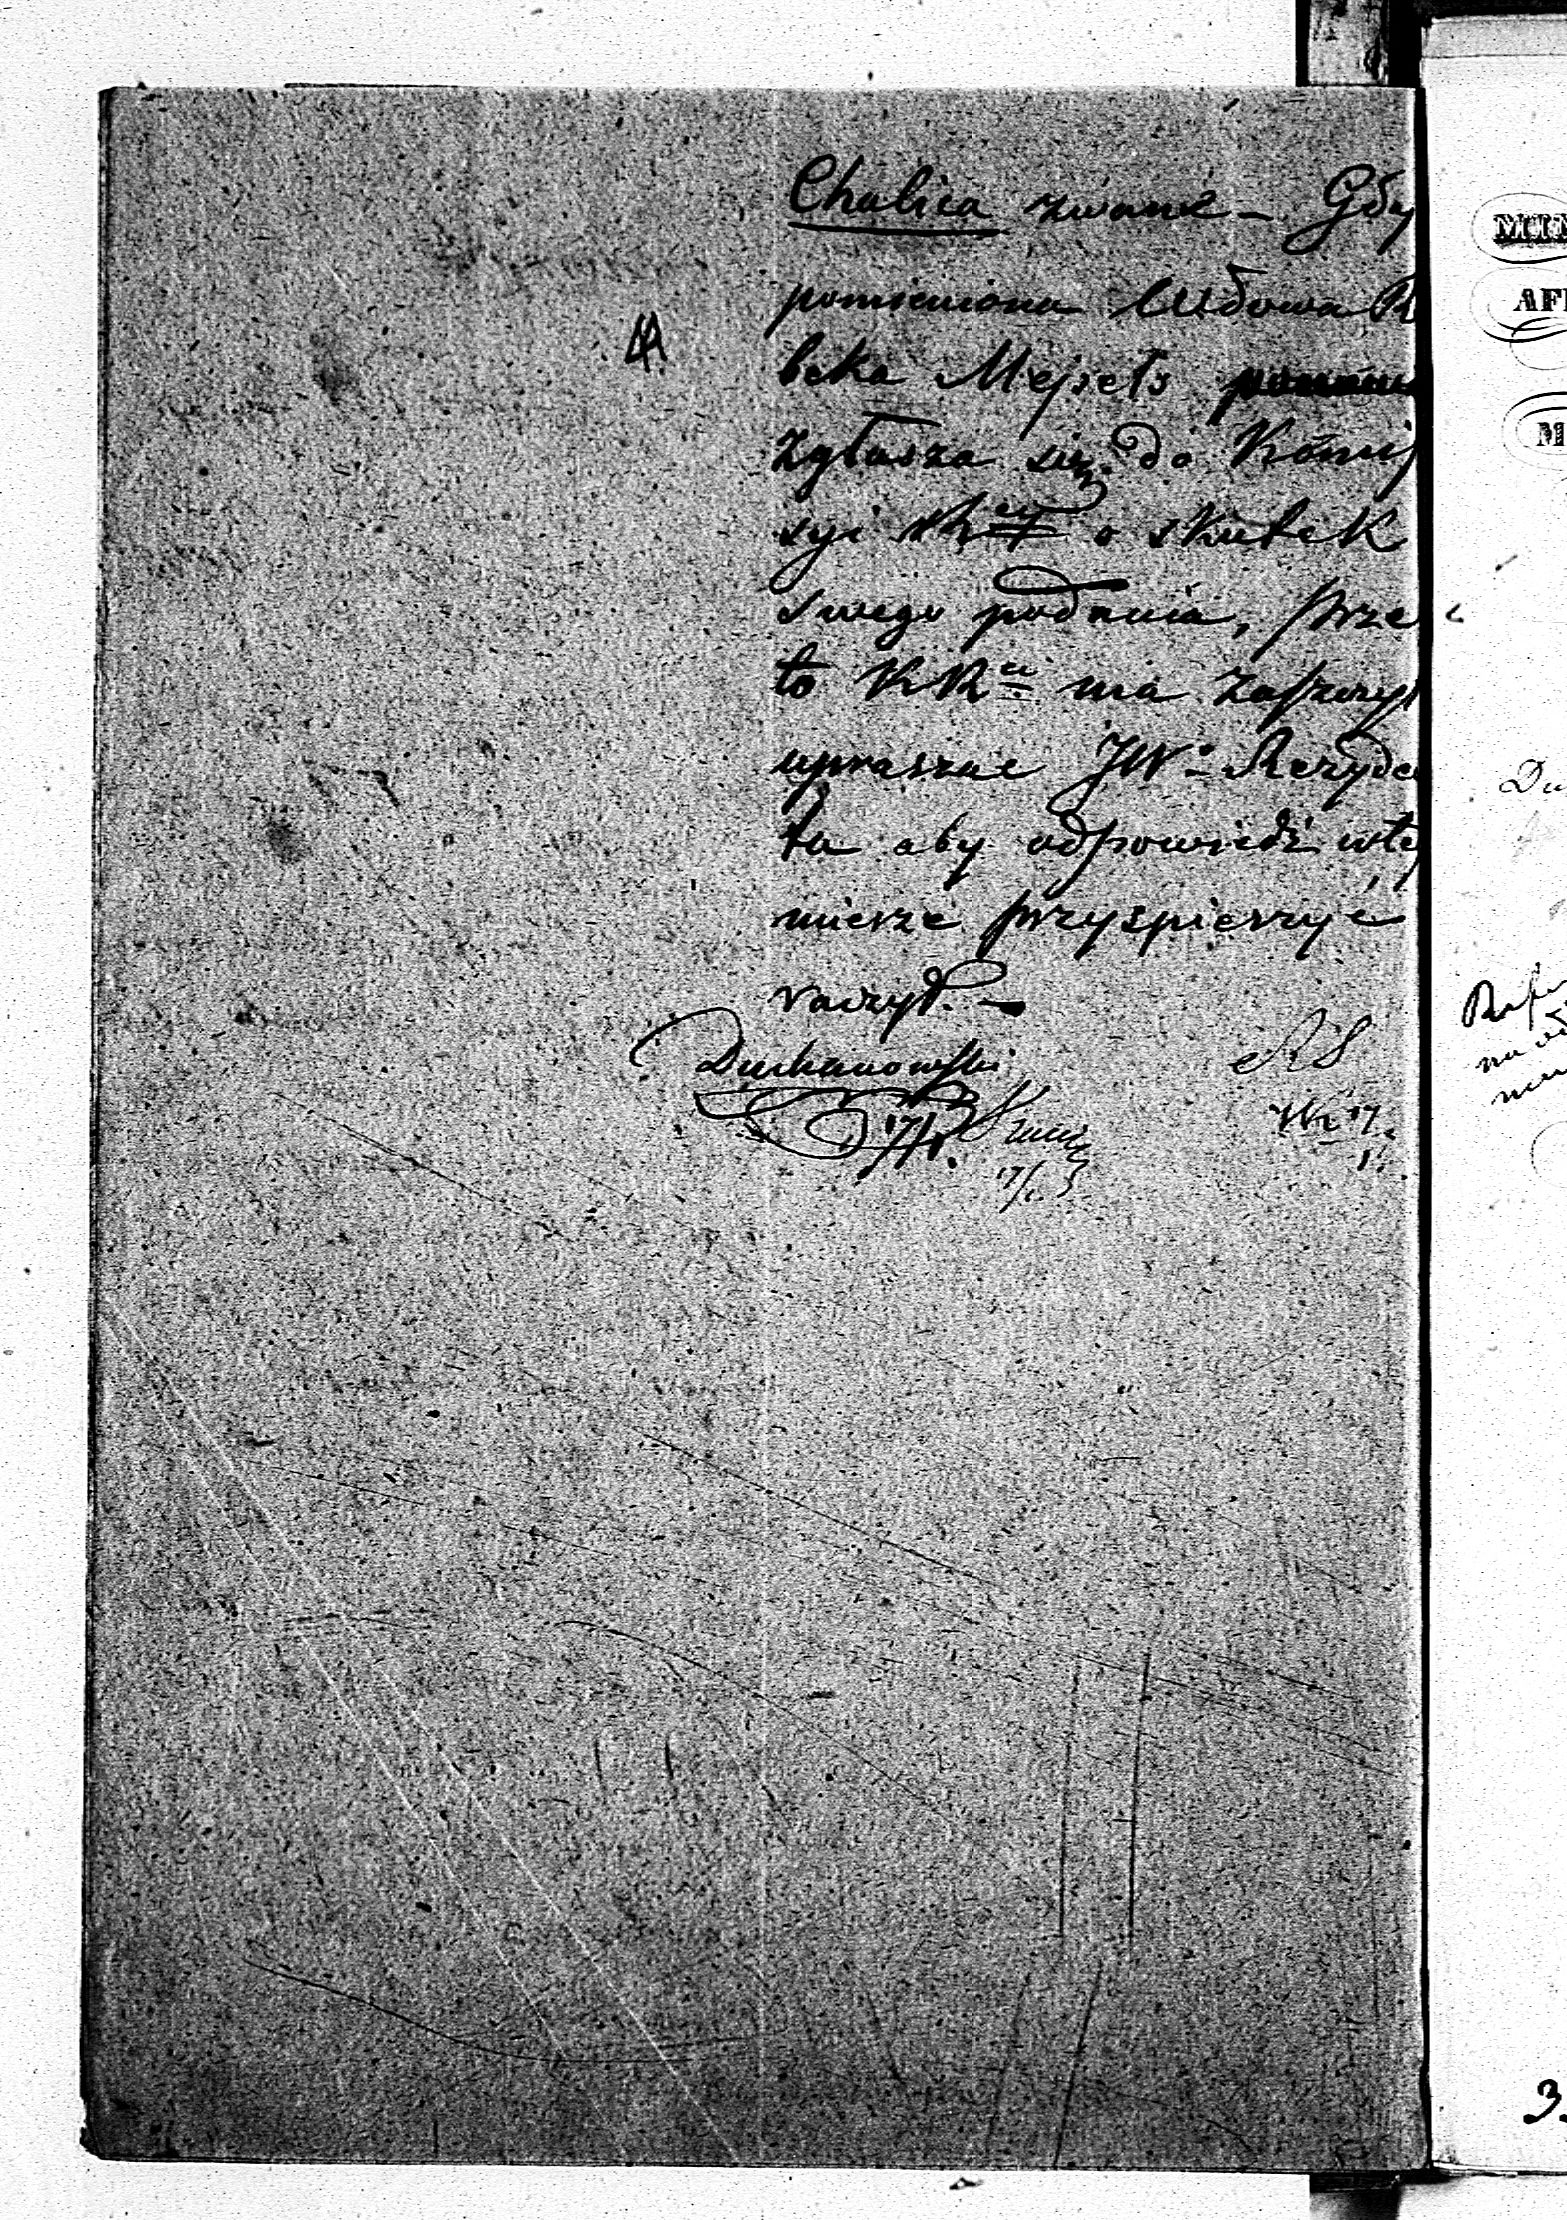 Chalica zwane - Gdy
pomieniona Wdowa R
beka Mejsels
zgłasza się do Komis
syi o skutek
swego podania, prze
to KR ma zaszczyt
upraszać JW. Rezyden
ta aby odpowiedź w tej
mierze przyspieszyć
raczył. -
Duchanowski
17/1.
17/1
17
1.
MIN
AFF
M
Du
3.